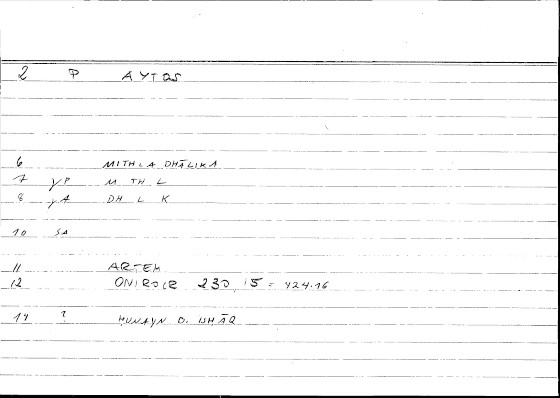 2 P AYTOS
6 MITHLA DHĀLIKA
7 yP M TH L
8 yA DH L K
10 SA
11 ARTEM
12 ONIROCR 230,15 = 424.16
14 ? HUNAYN B. ISHĀQ